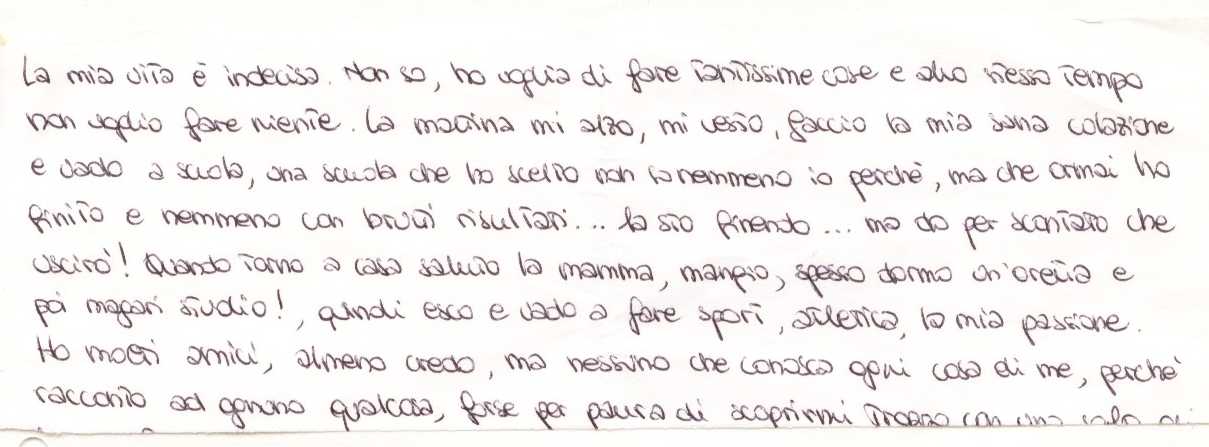 La mia vita è indecisa. Non so, ho voglia di fare tantissime cose e allo stesso tempo
non voglio fare niente. La mattina mi alzo, mi vesto, faccio la mia sana colazione
e vado a scuola, una scuola che ho scelto non so nemmeno io perchè, ma che ormai ho
finito e nemmeno con brutti risultati... la sto finendo... ma do per scontato che
uscirò! Quando torno a casa saluto la mamma, mangio, spesso dormo un'oretta e
poi magari studio!, quindi esco e vado a fare sport, atletica, la mia passione.
Ho molti amici, almeno credo, ma nessuno che conosca ogni cosa di me, perchè
racconto ad ognuno qualcosa, forse per paura di scoprirmi troppo con una sola